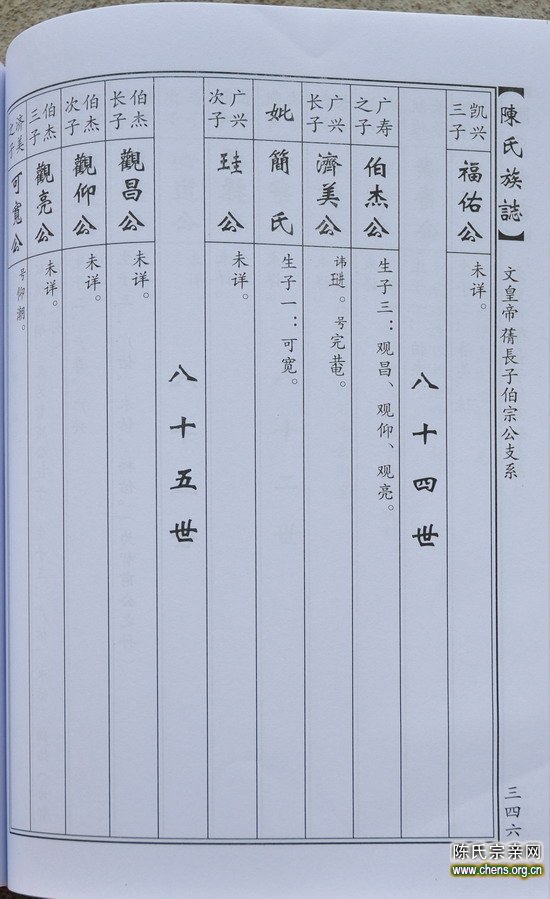 【陳氏族誌】
文皇帝蒨長子伯宗公支系
三四六
凯兴三子
福佑公
未详。
八十四世
广寿之子
伯杰公
生子三：观昌、观仰、观亮。
广兴长子
濟美公
讳琎。号完菴。
妣
簡氏
生子一：可宽。
广兴次子
珪公
未详。
八十五世
伯杰长子
觀昌公
未详。
伯杰次子
觀仰公
未详。
伯杰三子
觀亮公
未详。
济美之子
可寬公
号仰潮。
陈氏宗亲网
www.chens.org.cn